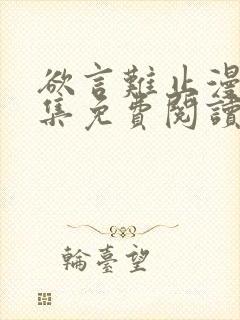 欲言難止漫
集免費閱讀
輪臺望